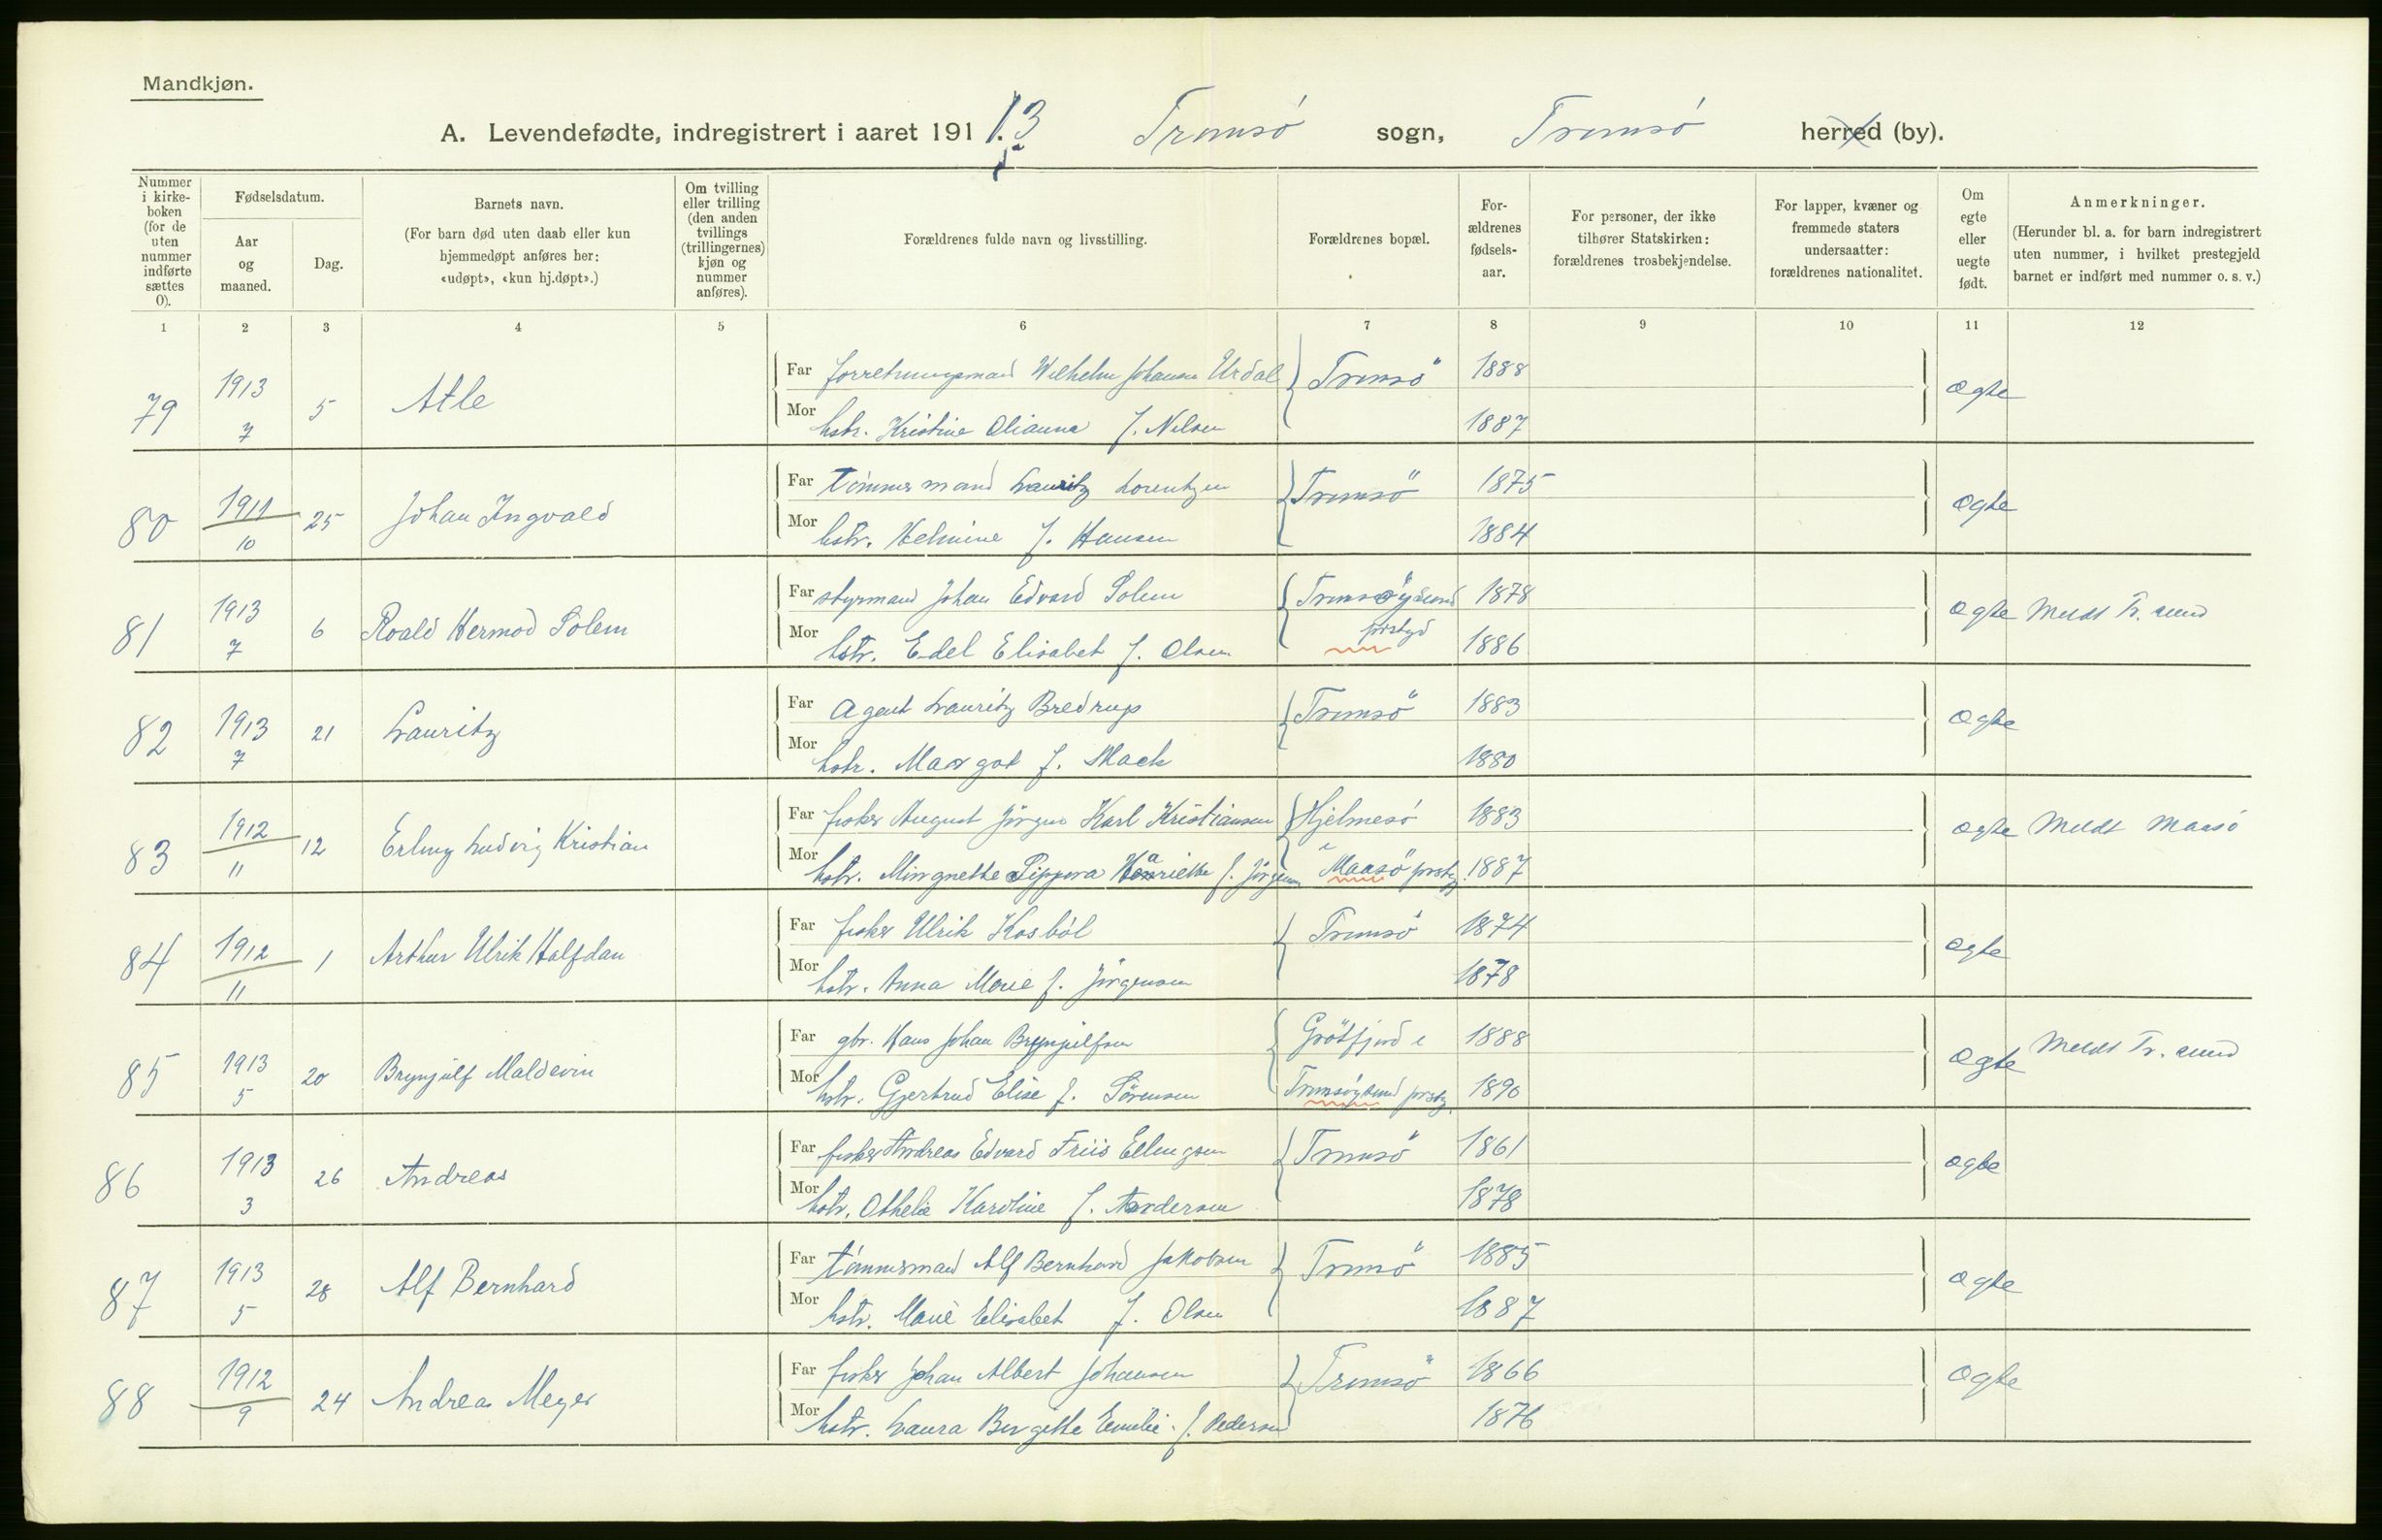 Mandkjøn.
A. Levendefødte, indregistrert i aaret 1913 Tromsö sogn, Tromsö herred (by).
Nummer i kirke-boken (for de uten nummer indførte sættes 0).
Fødselsdatum.
Aar og maaned.
Dag.
Barnets navn.
(For barn død uten daab eller kun hjemmedøpt anføres her: «udøpt», «kun hj.døpt».)
Om tvilling eller trilling (den anden tvillings (trillingernes) kjøn og nummer anføres).
Forældrenes fulde navn og livsstilling.
Forældrenes bopæl.
For-ældrenes fødsels-aar.
For personer, der ikke tilhører Statskirken: forældrenes trosbekjendelse.
For lapper, kvæner og fremmede staters undersaatter: forældrenes nationalitet.
Om egte eller uegte født.
Anmerkninger.
(Herunder bl. a. for barn indregistrert uten nummer, i hvilket prestegjeld barnet er indført med nummer o. s. v.)
1 2 3 4 5 6 7 8 9 10 11 12
79 1913 7 5 Atle
Far forretningsmand Wilhelm Johansen Urdal Tromsö 1888 ægte
Mor hstr. Kristine Olianna f. Nilsen 1887
80 1911 10 25 Johan Ingvald
Far tömmermand Lauritz Lorentzen Tromsö 1875 ægte
Mor hstr. Helmine f. Hansen 1884
81 1913 7 6 Roald Hermod Solem
Far styrmand Johan Edvard Solem Tromsöysund 1878 ægte Meldt Tr. sund
Mor hstr. Edel Elisabet f. Olsen prstgd 1886
82 1913 7 21 Lauritz
Far Agent Lauritz Bredrup Tromsö 1883 ægte
Mor hstr. Margot f. Mack 1880
83 1912 11 12 Erling Ludvig Kristian
Far fisker August Jörgen Karl Kristiansen Hjelmesö 1883 ægte Meldt Maasö
Mor hstr. Mingnette Sippora Henriette f. Jörgensen i Maasö prstg. 1887
84 1912 11 1 Arthur Ulrik Halfdan
Far fisker Ulrik Kosböl Tromsö 1874 ægte
Mor hstr. Anna Marie f. Jörgensen 1878
85 1913 5 20 Brynjulf Maldevin
Far gbr. Hans Johan Brynjulfsen Grötfjord i 1888 ægte Meldt Tr. sund
Mor hstr. Gjertrud Elise f. Sörensen Tromsöysund prstg. 1890
86 1913 3 26 Andreas
Far fisker Andreas Edvard Friis Ellingsen Tromsö 1861 ægte
Mor hstr. Othelie Karoline f. Andersen 1878
87 1913 5 28 Alf Bernhard
Far tömmermand Alf Bernhard Jakobsen Tromsö 1885 ægte
Mor hstr. Marie Elisabet f. Olsen 1887
88 1912 9 24 Andreas Meyer
Far fisker Johan Albert Johansen Tromsö 1866 ægte
Mor hstr. Laura Birgitte Emilie f. Pedersen 1876